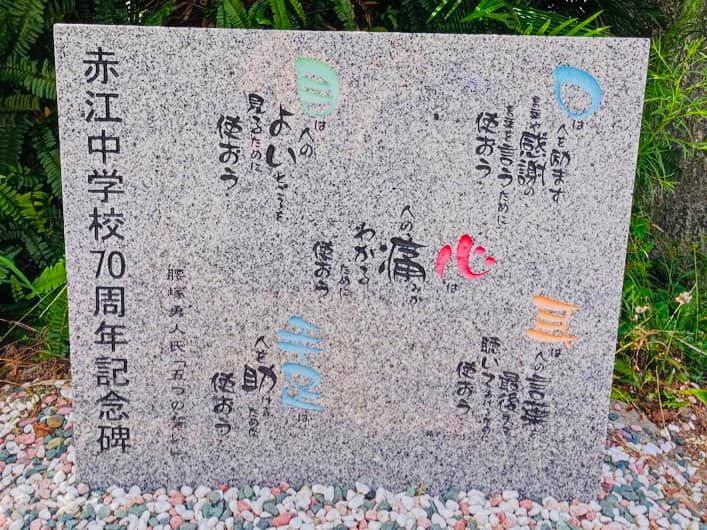 口は
人を励ます
言葉や感謝の
言葉を言うために
使おう
耳は
人の言葉を
最後まで
聴いてあげるために
使おう
心は
人の痛みが
わかる
ために
使おう
目は
人の
よいところを
見るために
使おう
手足は
人を助けるために
使おう
腰塚勇人氏「五つの誓い」
赤江中学校70周年記念碑